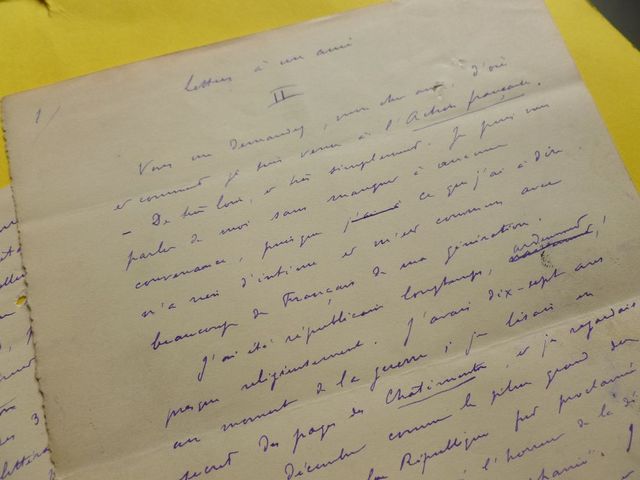 1)
Lettres à un ami
II
Vous me demandez, mon cher ami, d'où
et comment je suis venu à l'Action française.
– De très loin, et très simplement. Je puis vous
parler de moi sans manquer à aucune
convenance, puisque ce que j'ai à dire
n'a rien d'intime et m'est commun avec
beaucoup de Français de ma génération.
J'ai été républicain longtemps, ardemment,
presque religieusement. J'avais dix-sept ans
au moment de la guerre ; je lisais en
secret des pages des Châtiments, et je regardais
décembre comme le plus grand
la République fut proclamée
l'horreur de la